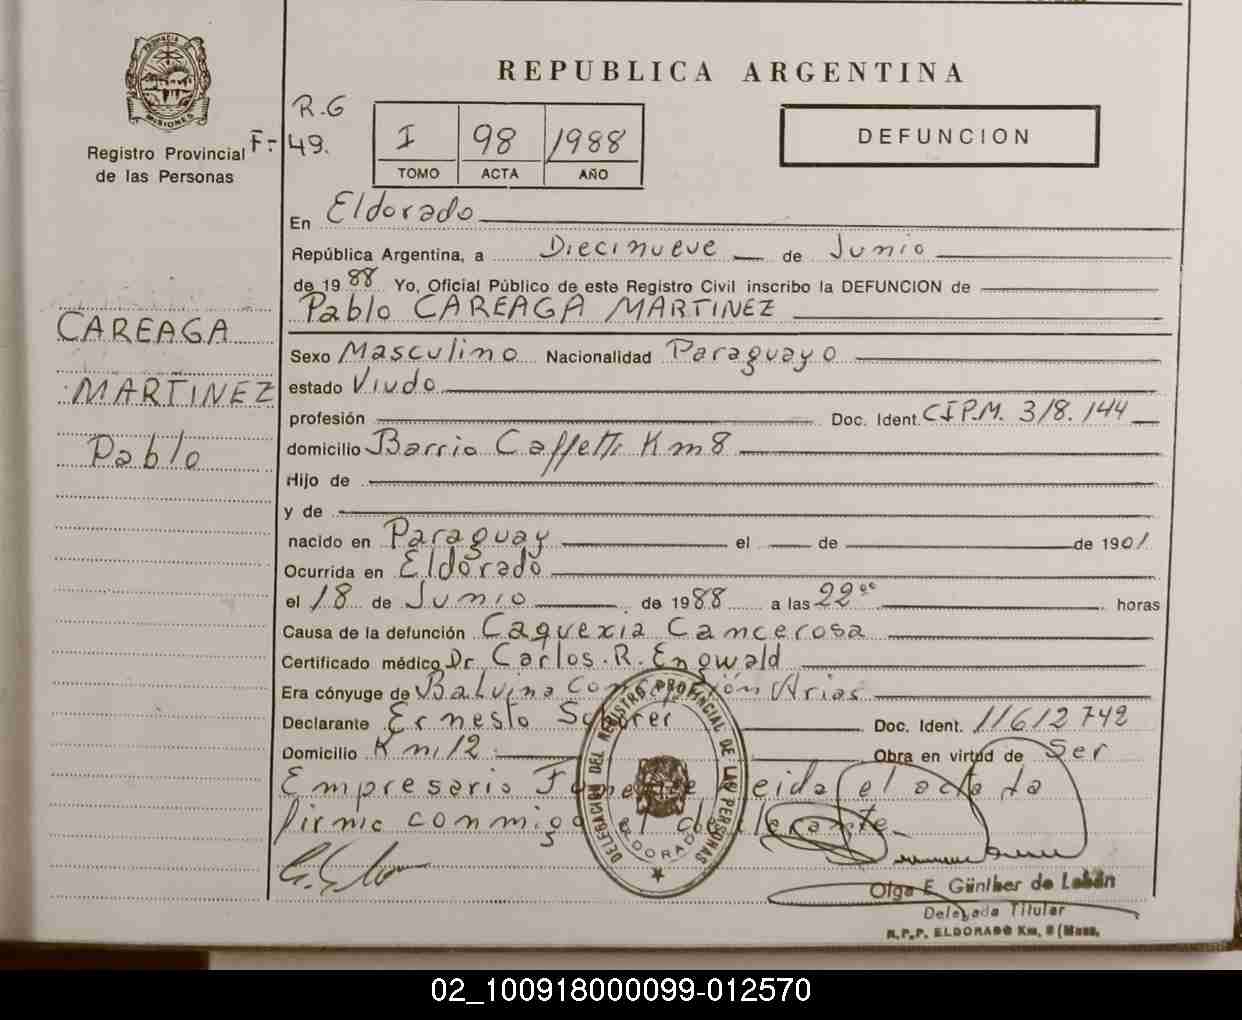 REPUBLICA ARGENTINA
PROVINCIA DE MISIONES
Registro Provincial
de las Personas
R.G
F- 49.
I 98 1988
TOMO ACTA AÑO
DEFUNCION
CAREAGA
MARTINEZ
Pablo
En Eldorado
República Argentina, a Diecinueve de Junio
de 1988 Yo, Oficial Público de este Registro Civil inscribo la DEFUNCION de
Pablo CAREAGA MARTINEZ
Sexo Masculino Nacionalidad Paraguayo
estado Viudo
profesión Doc. Ident. C.I.P.M. 318.144
domicilio Barrio Caffetti Km 8
Hijo de
y de
nacido en Paraguay el de de 1901
Ocurrida en Eldorado
el 18 de Junio de 1988 a las 22ºº horas
Causa de la defunción Caquexia Cancerosa
Certificado médico Dr. Carlos. R. Engwald
Era cónyuge de Balvina Arias
Declarante Ernesto Doc. Ident. 11612742
Domicilio Km 12 Obra en virtud de Ser
Empresario Leida el acta la
firma conmigo el declarante.
DELEGACION DEL REGISTRO PROVINCIAL DE LAS PERSONAS
ELDORADO
Olga E. Günther de Labán
Delegada Titular
R.P.P. ELDORADO Km. 8 (Mnes.
02_100918000099-012570